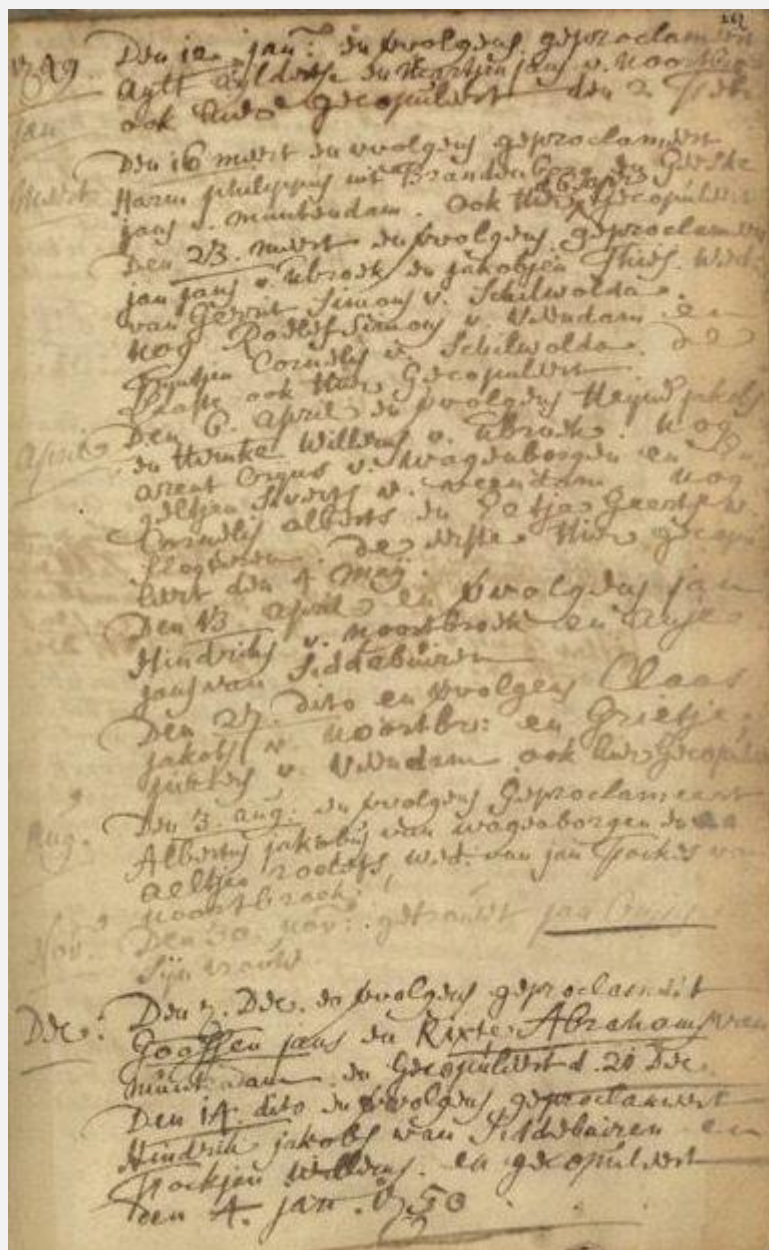 1749. Den 12 jan: en vvolgens geproclameert
jan Aylt en Martjen jans v. Noort
ook hier gecopuleert den 2 Feb
Den 16 meert en vvolgens geproclameert
Meert Harm philippus uit Brandenborg en Geeske
jans v. muntendam. ook hier gecopuleert
Den 23. meert en vvolgens geproclameert
jan jans v. nbroek en jakobjen Thies. wed:
van Gerrit Simons v. Schilwolda.
nog Roelef Simons v. Veendam en
Trijntjen Cornelis v. Schilwolda. de
laatste ook hier Gecopuleert
Den 6. april en vvolgens jakobs
April en Hemke Willems v. nbroek. nog
arent v. wagenborgen en
Geltjen Siverts v. veendam nog
Cornelis alberts en Geerts v.
de eerste hier gecopu
leert den 4 meij.
Den 13. april en vvolgens jan
Hindriks v. noortbroek en
jans van Siddebuiren
Den 27. dito en vvolgens Claas
jakobs v. noortbr: en Grietje
v. Veendam ook hier Gecopul
Aug. Den 3. aug: en vvolgens Geproclameert
Albertus jakobus van wagenborgen en
aeltjen roelefs, wed: van jan Fockes van
noortbroek.
Nov. Den 30. nov: getrouwt jan
Sijn vrouw
Dec: Den 7. Dec. en vvolgens geproclameert
Goossen jans en Rixte Abrahams van
muntendam en Gecopuleert d. 21 Dec.
Den 14. dito en vvolgens geproclameert
Hindrik jakobs van Siddebuiren en
Fockjen willems. en gecopuleert
den 4. jan. 1750